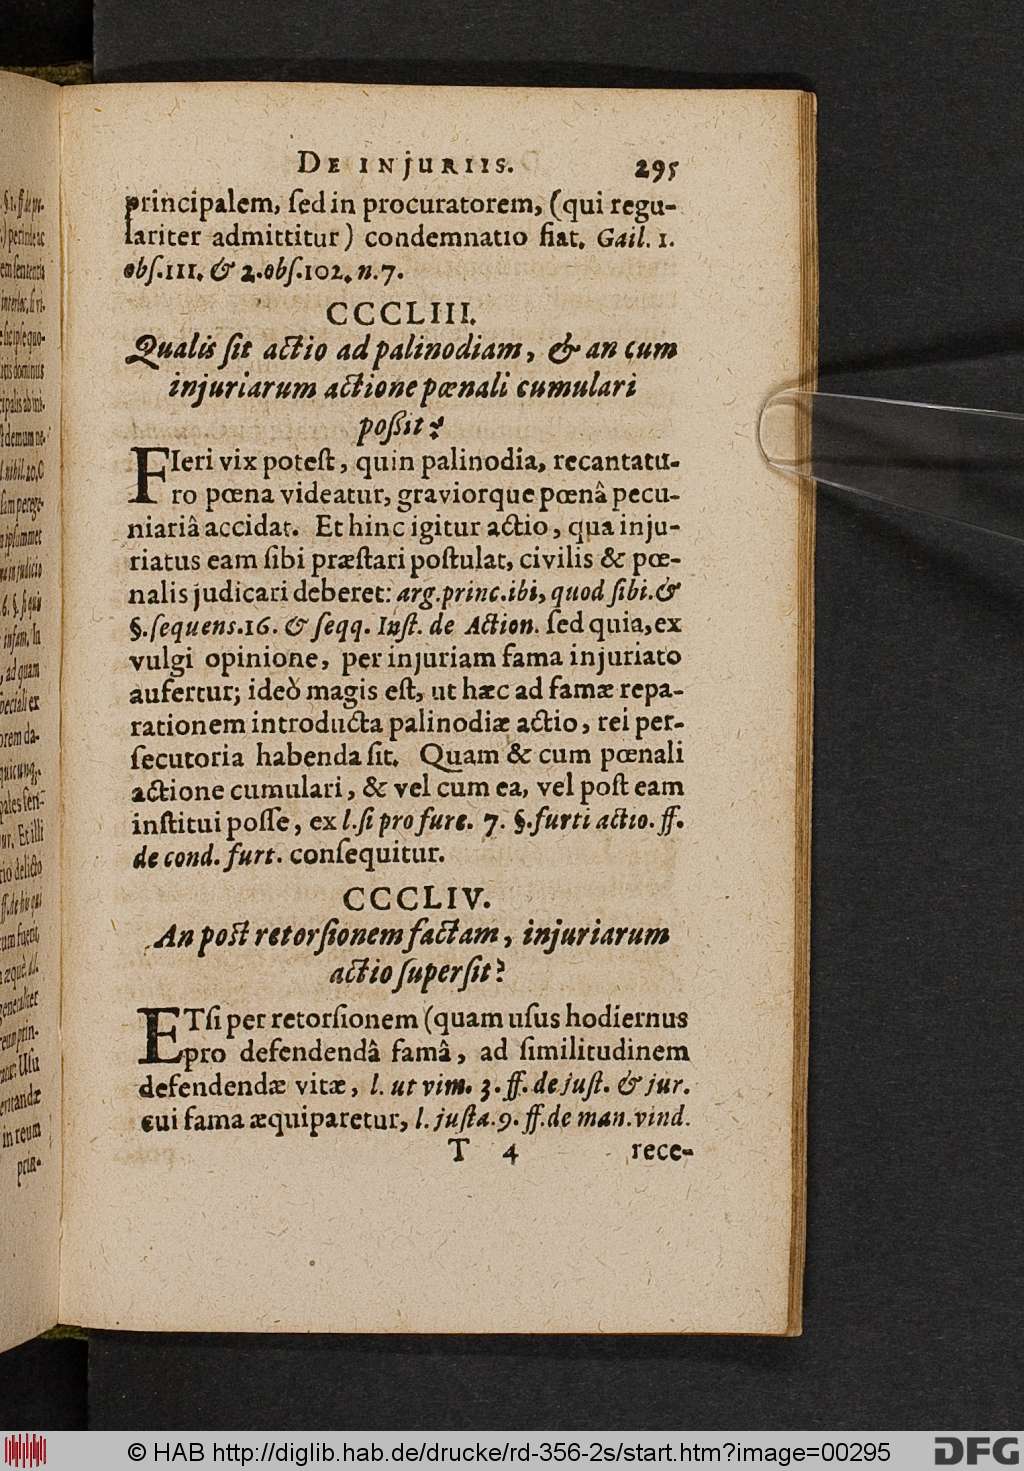 DE INJURIIS. 295
principalem, ſed in procuratorem, (qui regu-
lariter admittitur) condemnatio fiat. Gail. 1.
obſ. 111. & 2. obſ. 102. n. 7.
CCCLIII.
Qualis ſit actio ad palinodiam, & an cum
injuriarum actione pœnali cumulari
poßit?
FIeri vix poteſt, quin palinodia, recantatu-
ro pœna videatur, graviorque pœnâ pecu-
niariâ accidat. Et hinc igitur actio, qua inju-
riatus eam ſibi præſtari poſtulat, civilis & pœ-
nalis judicari deberet: arg. princ. ibi, quod ſibi. &
§. ſequens. 16. & ſeqq. Inſt. de Action. ſed quia, ex
vulgi opinione, per injuriam fama injuriato
aufertur; ideò magis eſt, ut hæc ad famæ repa-
rationem introducta palinodiæ actio, rei per-
ſecutoria habenda ſit. Quam & cum pœnali
actione cumulari, & vel cum ea, vel poſt eam
inſtitui poſſe, ex l. ſi pro fure. 7. §. furti actio. ff.
de cond. furt. conſequitur.
CCCLIV.
An poſt retorſionem factam, injuriarum
actio ſuperſit?
ETſi per retorſionem (quam uſus hodiernus
pro defendendâ famâ, ad ſimilitudinem
defendendæ vitæ, l. ut vim. 3. ff. de juſt. & jur.
cui fama æquiparetur, l. juſta. 9. ff. de man. vind.
T 4 rece-
© HAB http://diglib.hab.de/drucke/rd-356-2s/start.htm?image=00295
DFG